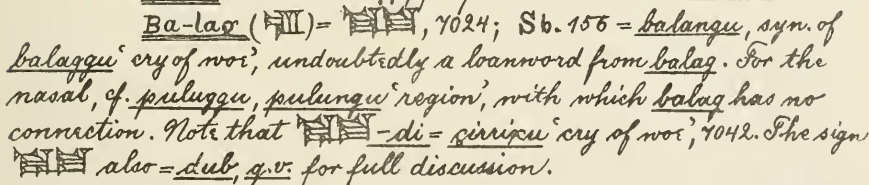 Ba-lag (𒁺)= , 7024; Sb. 156 = balangu, syn. of
balaggu ‘cry of woe’, undoubtedly a loanword from balag. For the
nasal, cf. puluggu, pulungu ‘region’, with which balag has no
connection. Note that -di = çirrixu ‘cry of woe’, 7042. The sign
also = dub, q.v. for full discussion.